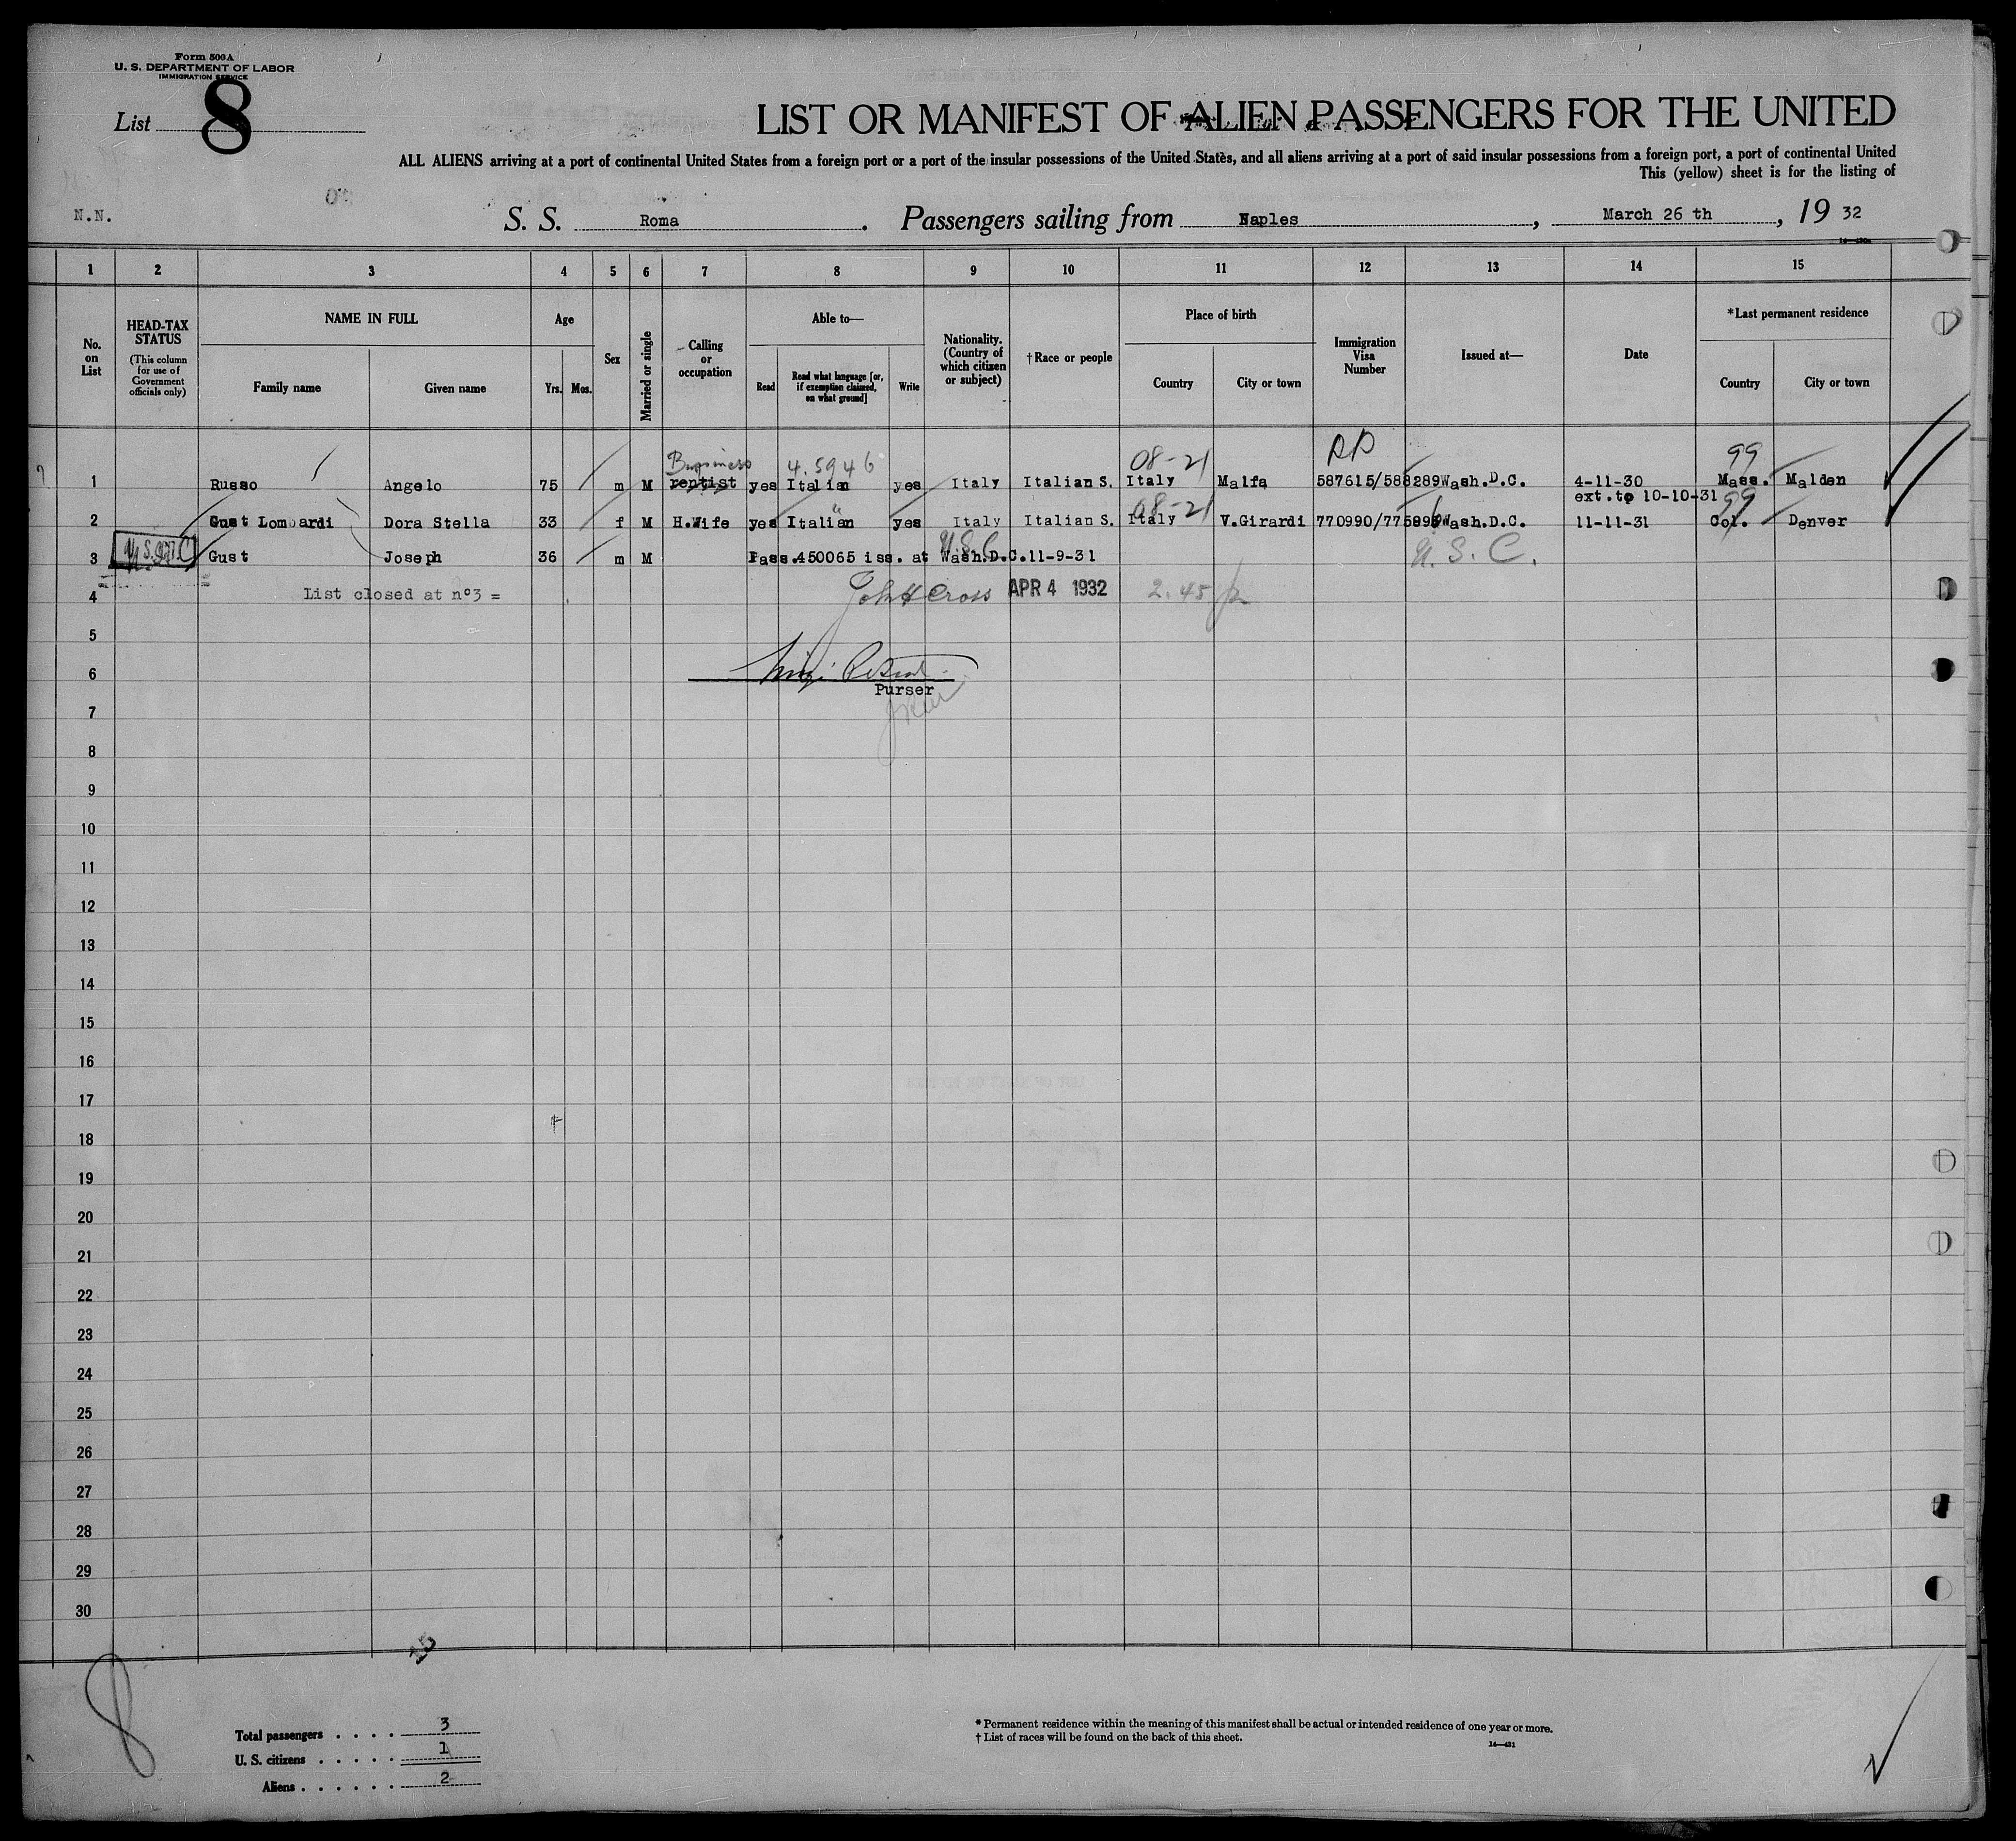 Form 500A
U. S. DEPARTMENT OF LABOR
IMMIGRATION SERVICE
List 8
LIST OR MANIFEST OF ALIEN PASSENGERS FOR THE UNITED
ALL ALIENS arriving at a port of continental United States from a foreign port or a port of the insular possessions of the United States, and all aliens arriving at a port of said insular possessions from a foreign port, a port of continental United
This (yellow) sheet is for the listing of
N.N.
S. S. Roma. Passengers sailing from Naples, March 26 th, 19 32
1 2 3 4 5 6 7 8 9 10 11 12 13 14 15
No. on List
HEAD-TAX STATUS
(This column for use of Government officials only)
NAME IN FULL
Family name Given name
Age
Yrs. Mos.
Sex
Married or single
Calling or occupation
Able to—
Read
Read what language [or, if exemption claimed, on what ground]
Write
Nationality. (Country of which citizen or subject)
†Race or people
Place of birth
Country City or town
Immigration Visa Number
Issued at—
Date
*Last permanent residence
Country City or town
Business 4.5946 08-21 99
1 Russo Angelo 75 m M rentist yes Italian yes Italy Italian S. Italy Malfa 587615/588289 Wash.D.C. 4-11-30 Mass. Malden
ext.to 10-10-31
08-21 99
2 Gust Lombardi Dora Stella 33 f M H.Wife yes Italian yes Italy Italian S. Italy V.Girardi 770990/775895 Wash.D.C. 11-11-31 Col. Denver
U.S.C. U.S.C.
3 Gust Joseph 36 m M Pass.450065 iss. at Wash.D.C.11-9-31
4 List closed at n°3 = John H Cross APR 4 1932 2.45
5
6
Purser
7
8
9
10
11
12
13
14
15
16
17
18
19
20
21
22
23
24
25
26
27
28
29
30
8
Total passengers . . . . 3
U. S. citizens . . . . . 1
Aliens . . . . . . 2
* Permanent residence within the meaning of this manifest shall be actual or intended residence of one year or more.
† List of races will be found on the back of this sheet.
14—431